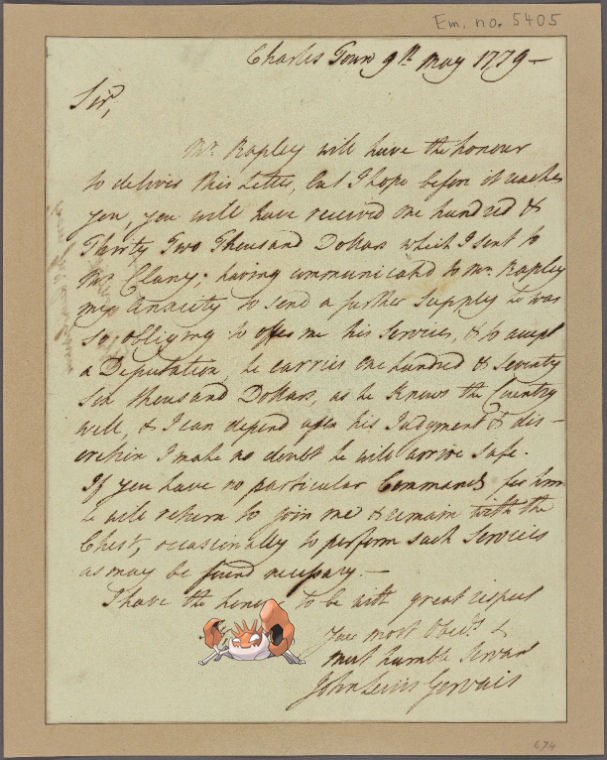 Em. no. 5405
Charles Town 9th May 1779 —
Sir,
Mr. Rapley will have the honour
to deliver this Letter, but I hope before it reaches
you, you will have received One hundred &
Thirty Two Thousand Dollars which I sent to
Mr Clany; having communicated to Mr. Rapley
my Anxiety to send a further Supply he was
so obliging to offer me his Services, & to accept
a Deputation, he carries One hundred & Seventy
Six thousand Dollars, as he Knows the Country
well, & I can depend upon his Judgment & dis-
cretion I make no doubt he will arrive safe.
If you have no particular Commands for him
he will return to join me & remain with the
Chest, occasionally to perform such Services
as may be found necessary. —
I have the honour to be with great respect
Your most Obedt. &
most humble Servant
John Lewis Gervais
674